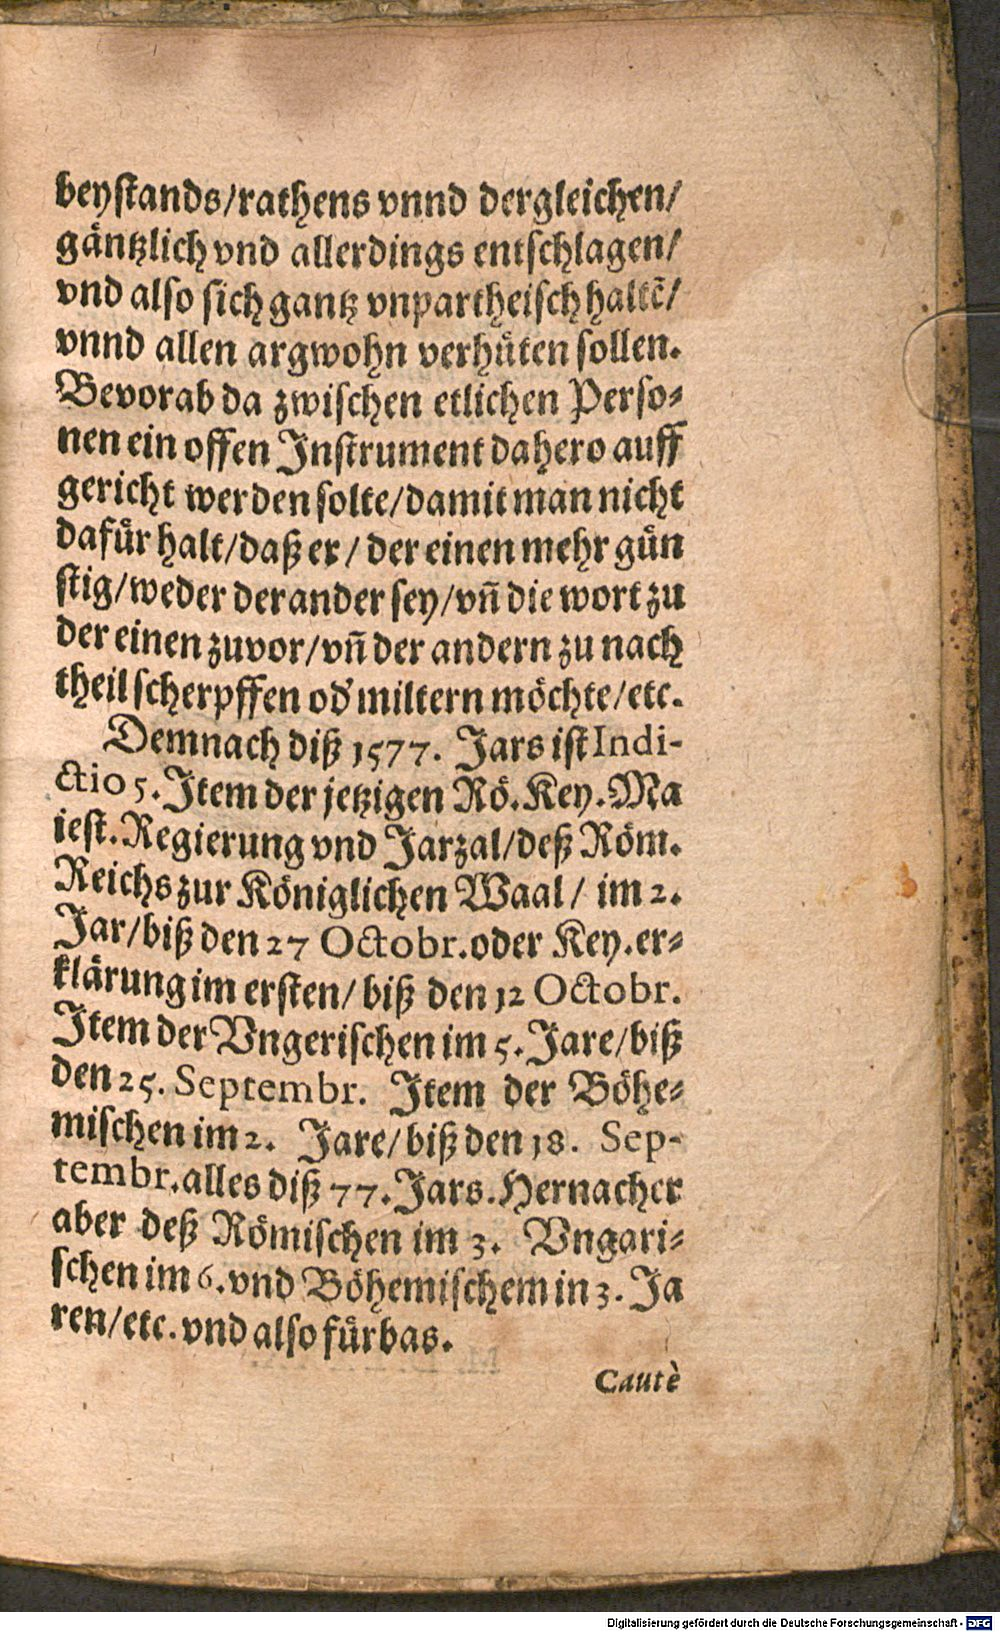 beystands/rathens vnnd dergleichen/
gäntzlich vnd allerdings entschlagen/
vnd also sich gantz vnpartheisch haltē/
vnnd allen argwohn verhüten sollen.
Bevorab da zwischen etlichen Perso-
nen ein offen Instrument dahero auff
gericht werden solte/damit man nicht
dafür halt/daß er/ der einen mehr gün
stig/weder der ander sey/vñ die wort zu
der einen zuvor/vñ der andern zu nach
theil scherpffen od' miltern möchte/etc.
Demnach diß 1577. Jars ist Indi-
ctio 5. Item der jetzigen Rö. Key. Ma
iest. Regierung vnd Jarzal/deß Röm.
Reichs zur Königlichen Waal/ im 2.
Jar/biß den 27 Octobr. oder Key. er-
klärung im ersten/ biß den 12 Octobr.
Item der Vngerischen im 5. Jare/biß
den 25. Septembr. Item der Böhe-
mischen im 2. Jare/biß den 18. Sep-
tembr. alles diß 77. Jars. Hernacher
aber deß Römischen im 3. Vngari-
schen im 6. vnd Böhemischem in 3. Ja
ren/etc. vnd also fürbas.
Cautè
Digitalisierung gefördert durch die Deutsche Forschungsgemeinschaft - DFG